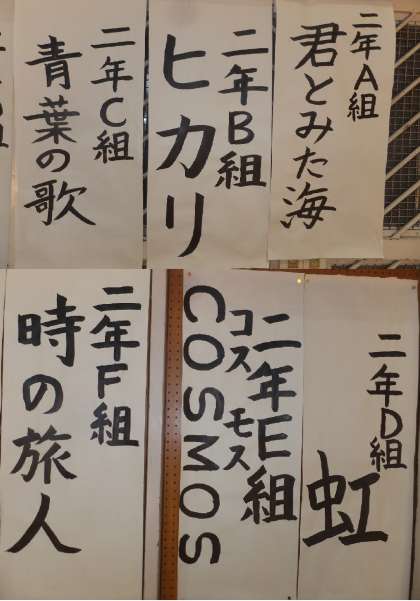 二年A組
君とみた海
二年B組
ヒカリ
二年C組
青葉の歌
二年D組
虹
二年E組
コスモス
COSMOS
二年F組
時の旅人